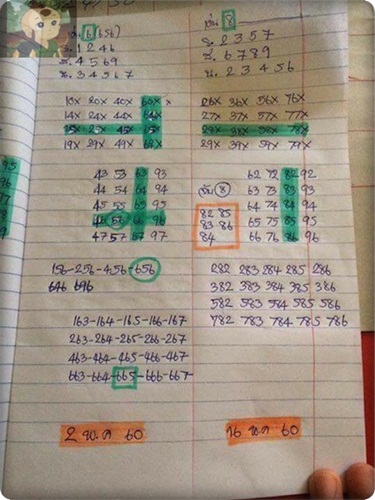 เด่น 6 (656)
ร. 1 2 4 6
สิ. 4 5 6 9
น. 3 4 5 6 7
10x 20x 40x 60x x
14x 24x 44x 64x
15x 25x 45x 65x
19x 29x 49x 69x
43 53 63 93
44 54 64 94
45 55 65 95
46 56 66 96
47 57 67 97
156-256-456-656
646 696
163-164-165-166-167
263-264-265-266-267
463-464-465-466-467
663-664-665-666-667
2 พ.ค 60
เด่น 8
ร. 2 3 5 7
สิ. 6 7 8 9
น. 2 3 4 5 6
26x 36x 56x 76x
27x 37x 57x 77x
28x 38x 58x 78x
29x 39x 59x 79x
62 72 82 92
63 73 83 93
64 74 84 94
65 75 85 95
66 76 86 96
เด่น 8
82 85
83 86
84
282 283 284 285 286
382 383 384 385 386
582 583 584 585 586
782 783 784 785 786
16 พ.ค 60
95
96
97